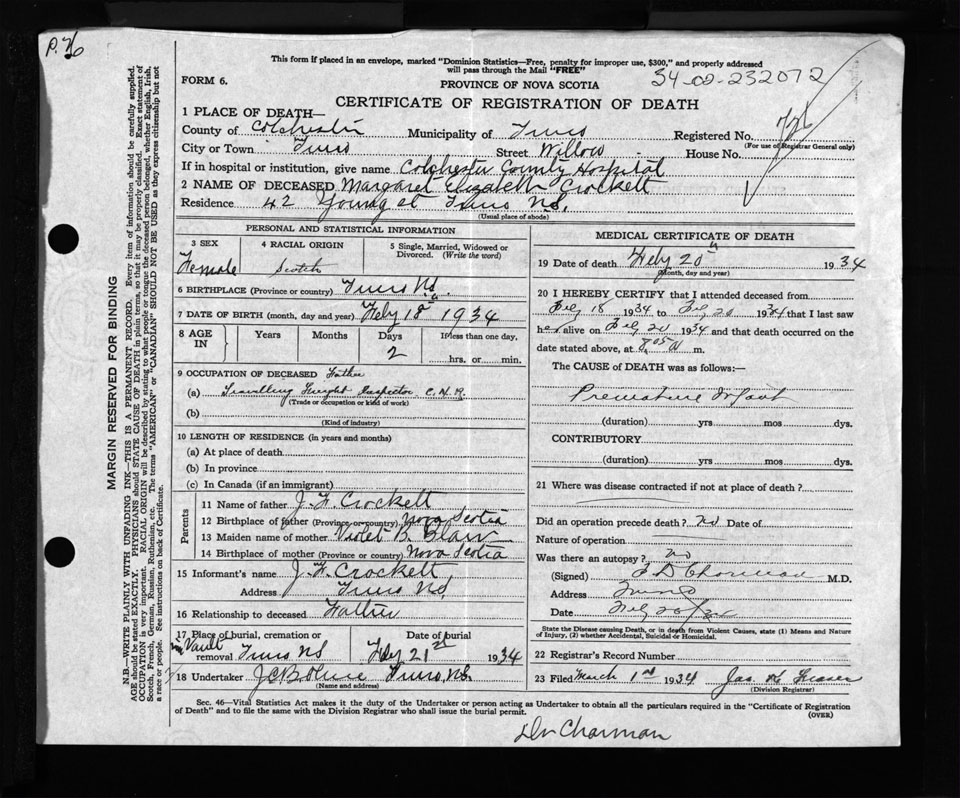 P. 76
This form if placed in an envelope, marked "Dominion Statistics—Free, penalty for improper use, $300," and properly addressed
will pass through the Mail "FREE"
34-02-232072
FORM 6.
PROVINCE OF NOVA SCOTIA
CERTIFICATE OF REGISTRATION OF DEATH
1 PLACE OF DEATH—
County of Colchester Municipality of Truro Registered No.
(For use of Registrar General only)
City or Town Truro Street Willow House No.
If in hospital or institution, give name Colchester County Hospital
2 NAME OF DECEASED Margaret Elizabeth Crockett
Residence 42 Young st Truro N.S.
(Usual place of abode)
PERSONAL AND STATISTICAL INFORMATION
3 SEX 4 RACIAL ORIGIN 5 Single, Married, Widowed or
Divorced. (Write the word)
Female Scotch
6 BIRTHPLACE (Province or country) Truro N.S.
7 DATE OF BIRTH (month, day and year) Feby 18th 1934
8 AGE IN Years Months Days If less than one day.
2 hrs. or min.
9 OCCUPATION OF DECEASED Father
(a) Travelling Freight Inspector C.N.R.
(Trade or occupation or kind of work)
(b)
(Kind of industry)
10 LENGTH OF RESIDENCE (in years and months)
(a) At place of death
(b) In province
(c) In Canada (if an immigrant)
Parents
11 Name of father J. F. Crockett
12 Birthplace of father (Province or country) Nova Scotia
13 Maiden name of mother Violet B. Blair
14 Birthplace of mother (Province or country) Nova Scotia
15 Informant's name J. F. Crockett
Address Truro N.S.
16 Relationship to deceased Father
17 Place of burial, cremation or Date of burial
Vault removal Truro NS Feby 21st 1934
18 Undertaker Truro, N.S.
(Name and address)
MEDICAL CERTIFICATE OF DEATH
19 Date of death Feby 20th 1934
(Month, day and year)
20 I HEREBY CERTIFY that I attended deceased from
Feb 18 1934 to Feb 20 1934 that I last saw
her alive on Feb 20 1934 and that death occurred on the
date stated above, at 8.05 A m.
The CAUSE of DEATH was as follows:—
Premature Infant
(duration) yrs mos dys.
CONTRIBUTORY
(duration) yrs mos dys.
21 Where was disease contracted if not at place of death?
Did an operation precede death? no Date of
Nature of operation
Was there an autopsy? no
(Signed) Charman M.D.
Address Truro
Date Feb 20/34
State the Disease causing Death, or in death from Violent Causes, state (1) Means and Nature
of Injury, (2) whether Accidental, Suicidal or Homicidal.
22 Registrar's Record Number
23 Filed March 1st 1934 Jas
(Division Registrar)
Sec. 46—Vital Statistics Act makes it the duty of the Undertaker or person acting as Undertaker to obtain all the particulars required in the "Certificate of Registration
of Death" and to file the same with the Division Registrar who shall issue the burial permit.
(OVER)
Dr Charman
MARGIN RESERVED FOR BINDING
N.B.—WRITE PLAINLY WITH UNFADING INK—THIS IS A PERMANENT RECORD. Every item of information should be carefully supplied.
AGE should be stated EXACTLY. PHYSICIANS should STATE CAUSE OF DEATH in plain terms, so that it may be properly classified. Exact statement of
OCCUPATION is very important. RACIAL ORIGIN will be described by stating to what people or tongue the deceased person belonged, whether English, Irish,
Scotch, French, German, Russian, Ruthenian, etc. The terms "AMERICAN" or "CANADIAN" SHOULD NOT BE USED as they express citizenship but not
a race or people. See instructions on back of Certificate.